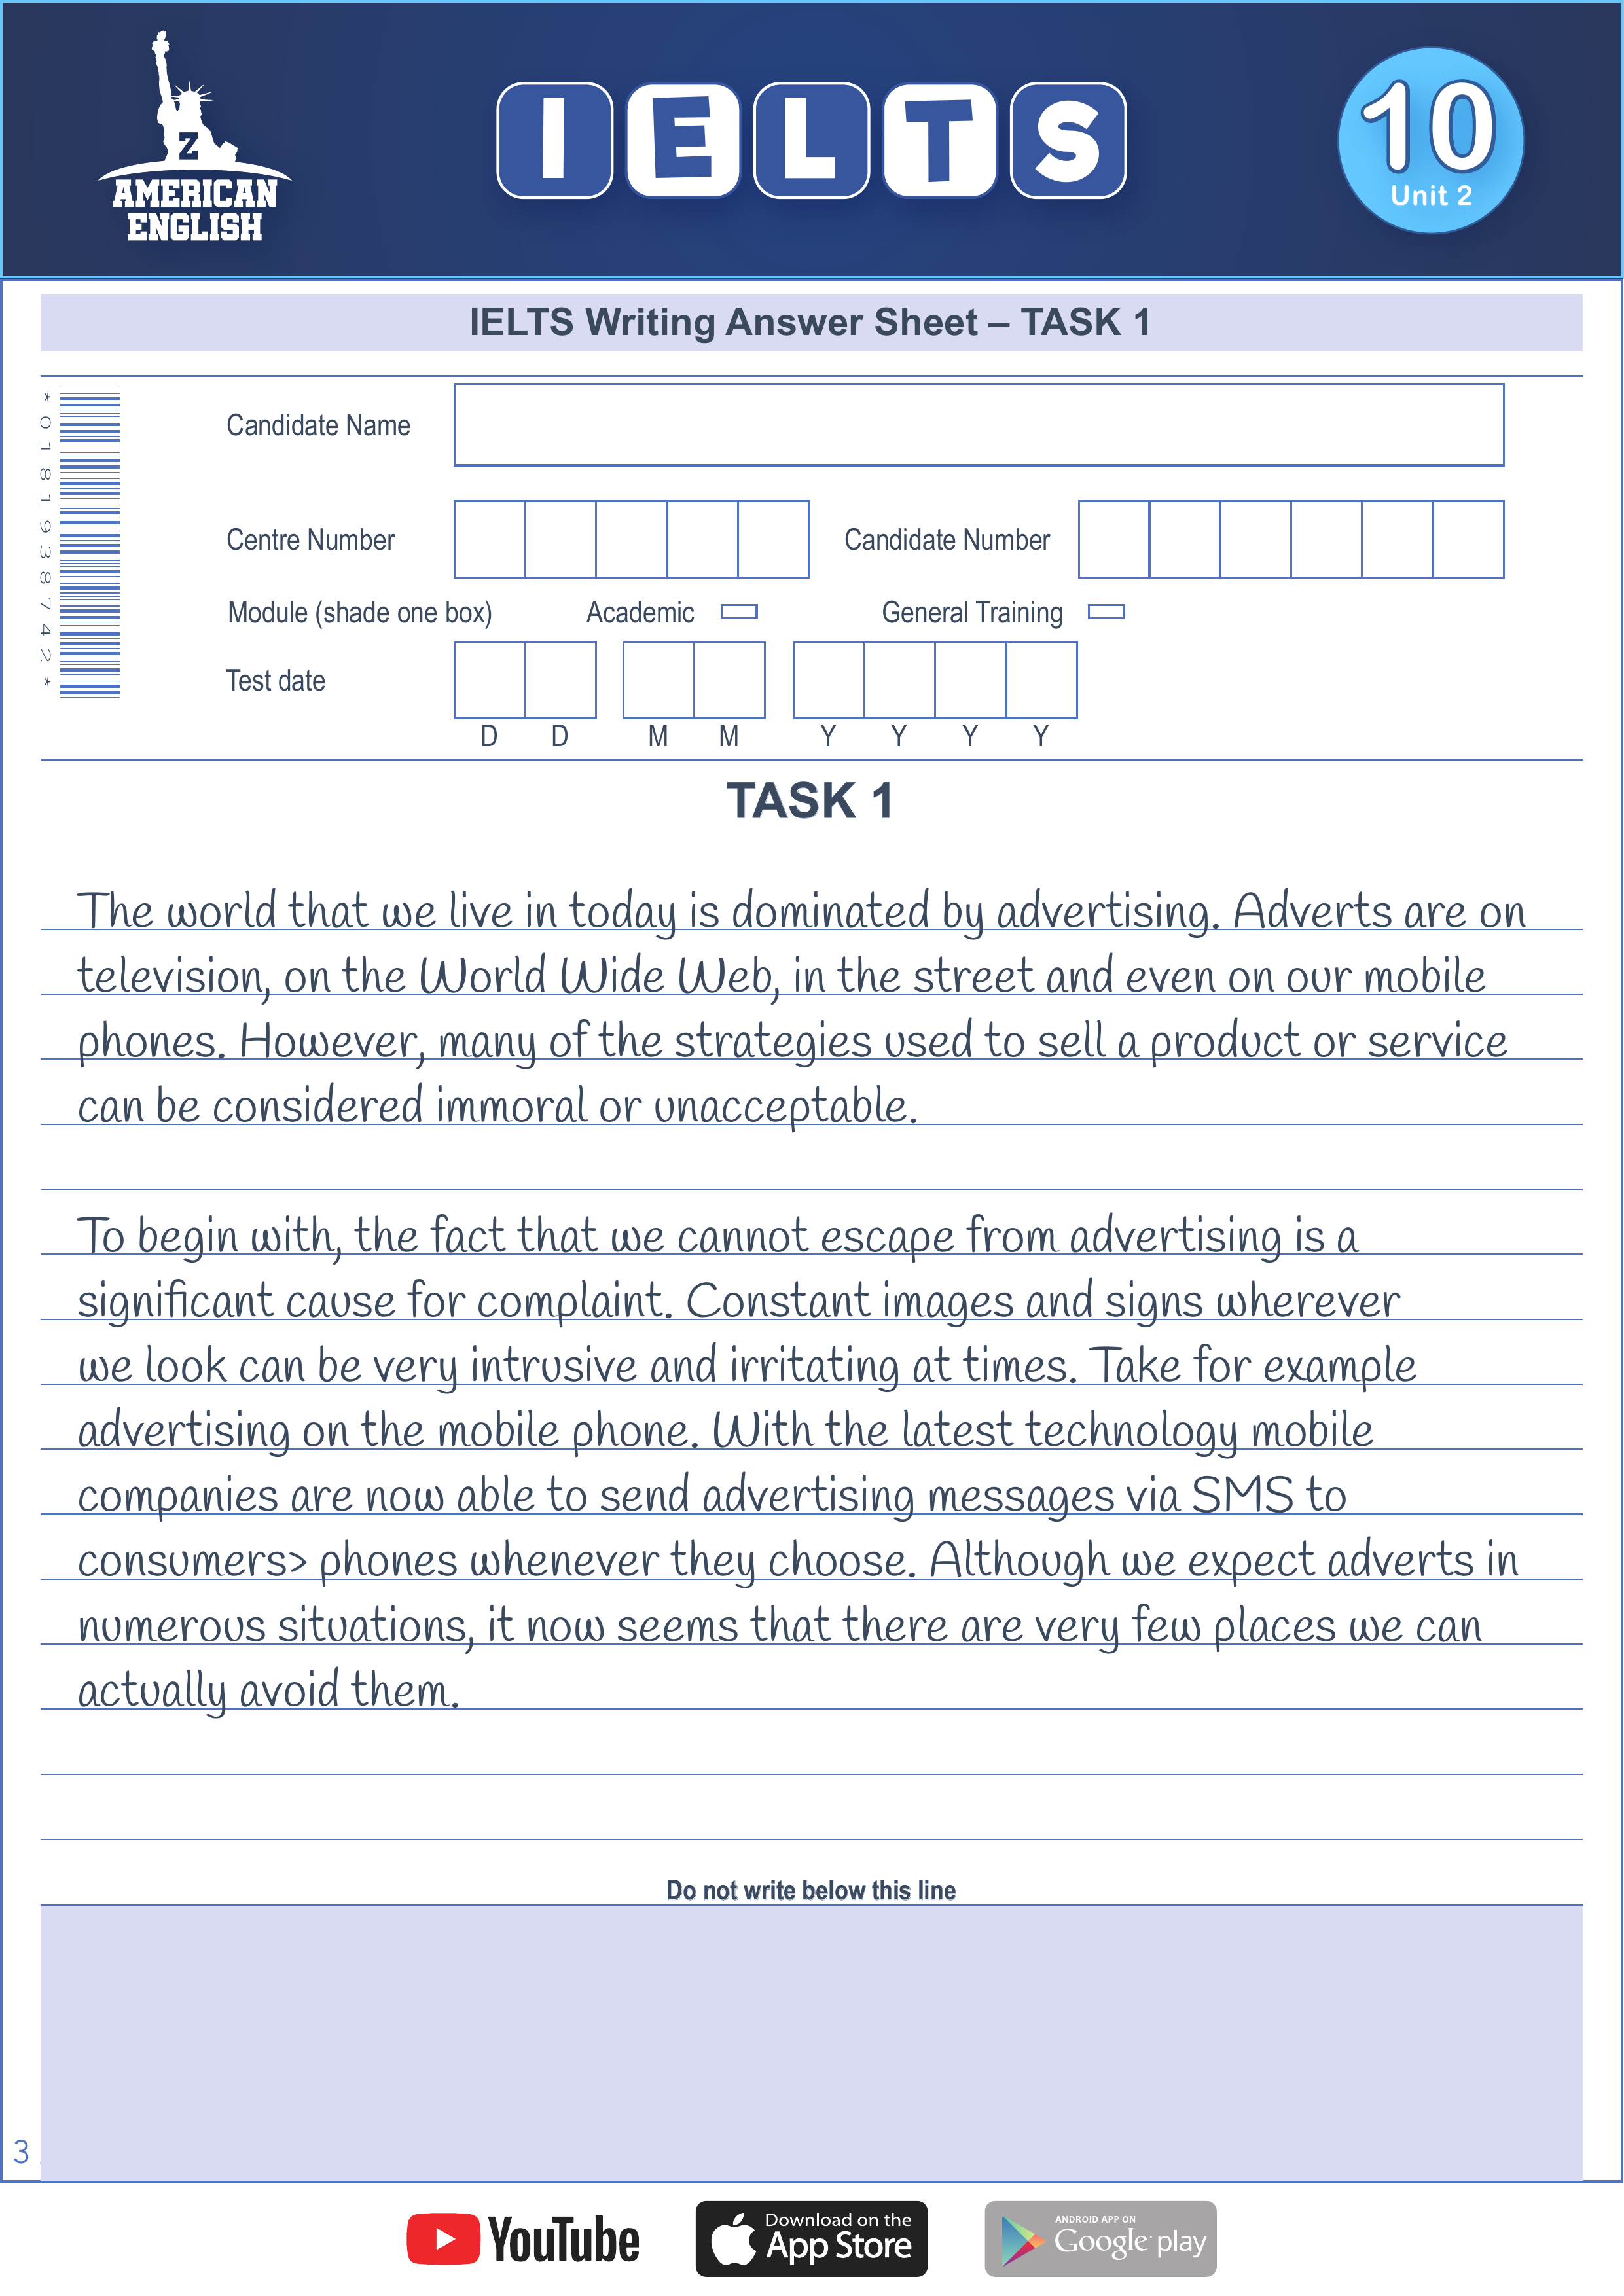 Z
AMERICAN
ENGLISH
IELTS
10
Unit 2
IELTS Writing Answer Sheet – TASK 1
*0181938742*
Candidate Name
Centre Number
Candidate Number
Module (shade one box) Academic General Training
Test date
D D M M Y Y Y Y
TASK 1
The world that we live in today is dominated by advertising. Adverts are on
television, on the World Wide Web, in the street and even on our mobile
phones. However, many of the strategies used to sell a product or service
can be considered immoral or unacceptable.
To begin with, the fact that we cannot escape from advertising is a
significant cause for complaint. Constant images and signs wherever
we look can be very intrusive and irritating at times. Take for example
advertising on the mobile phone. With the latest technology mobile
companies are now able to send advertising messages via SMS to
consumers> phones whenever they choose. Although we expect adverts in
numerous situations, it now seems that there are very few places we can
actually avoid them.
Do not write below this line
3
YouTube
Download on the
App Store
ANDROID APP ON
Google play